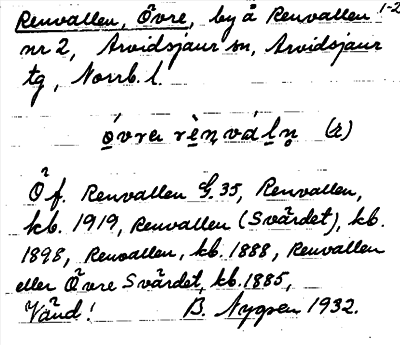 Renvallen, Övre, by å Renvallen 1-2
nr 2, Arvidsjaur sn, Arvidsjaur
tg, Norrb. l.
óvra rènvál̥n̥ (r)
Ö f. Renvallen G. 35, Renvallen,
kb. 1919, Renvallen (Svärdet), kb.
1898, Renvallen, kb. 1888, Renvallen
eller Övre Svärdet, kb. 1885,
Vänd! B. Nygren 1932.